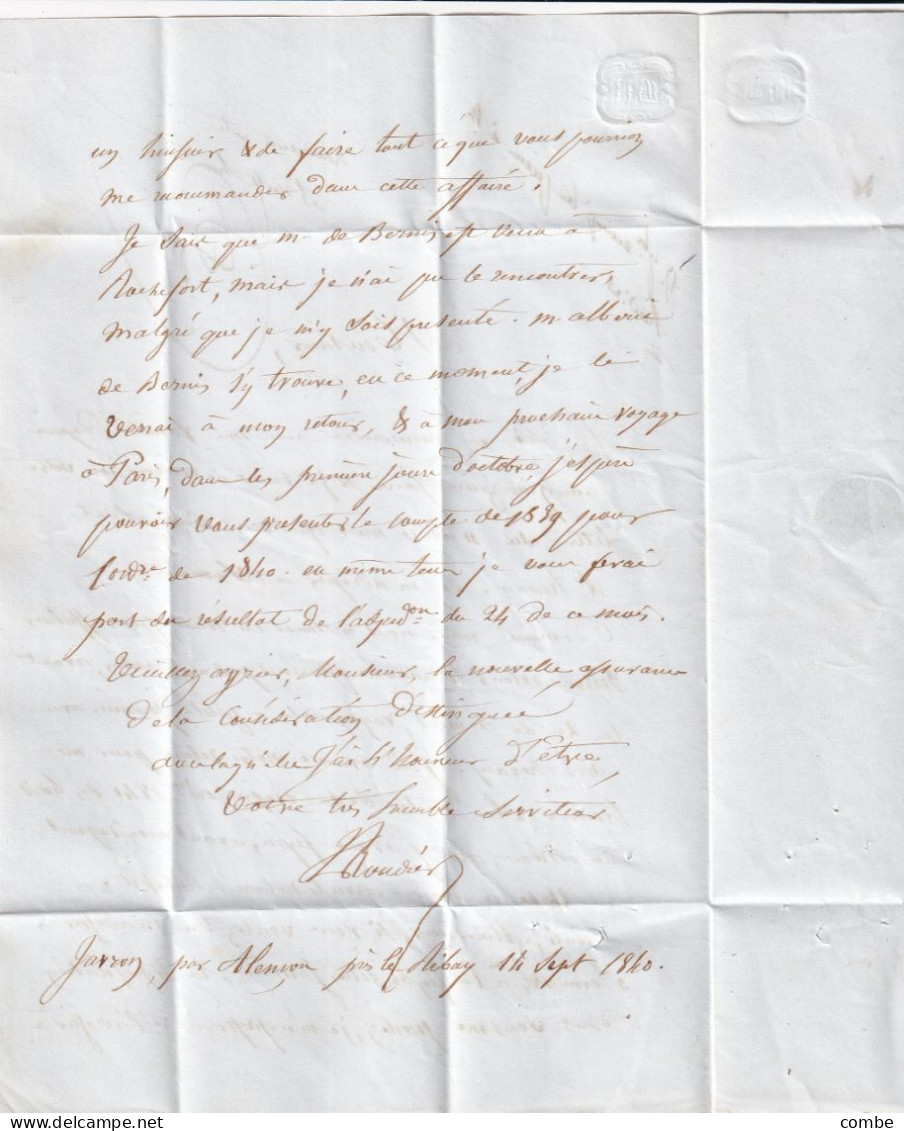 un huissier & de faire tout ce que vous pourriez
me recommander dans cette affaire.
Je sais que m. de Bernis est venu à
Rochefort, mais je n'ai pu le rencontrer,
malgré que je m'y sois presenté. m. albouis
de Bernis s'y trouve, en ce moment, je le
verrai à mon retour, & à mon prochain voyage
à Paris, dans les premiers jours d'octobre, j'espère
pouvoir vous presenter le compte de 1839 pour
l'ordre de 1840. en même tems je vous ferai
part du résultat de l'adjudon du 24 de ce mois.
Veuillez agréer, Monsieur, la nouvelle assurance
de la considération distinguée
avec laquelle J'ai l'honneur d'être,
Votre très humble serviteur
Roudier
Javron, par Alençon près le Ribay 14 Sept 1840.
combe